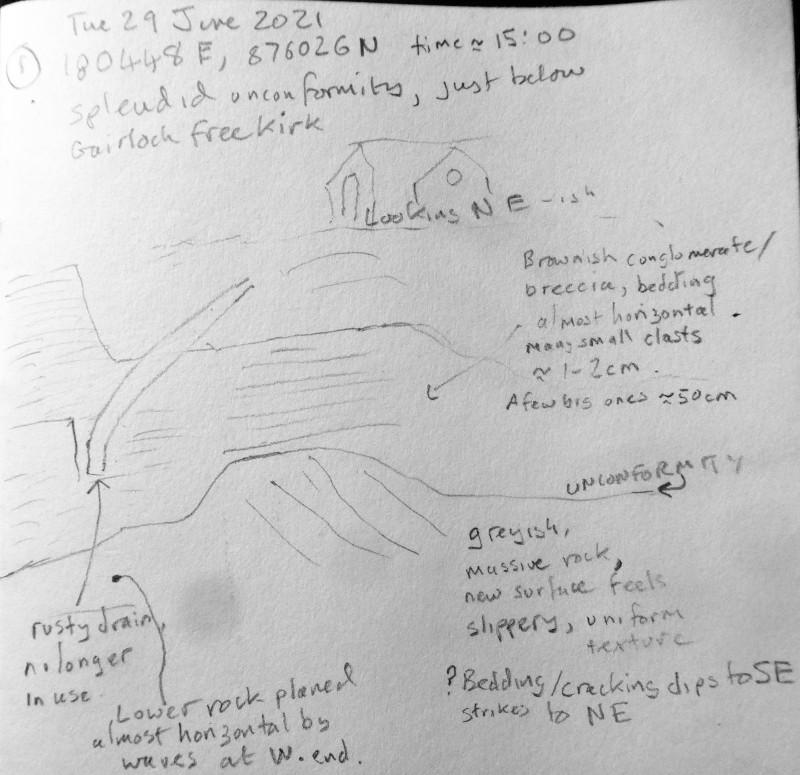 Tue 29 June 2021
① 180448 E, 876026 N time ≈ 15:00
splendid unconformity, just below
Gairloch free kirk
Looking N E -ish
Brownish conglomerate/
breccia, bedding
almost horizontal.
Many small clasts
≈ 1-2cm.
A few big ones ≈ 50cm
UNCONFORMITY
greyish,
massive rock,
new surface feels
slippery, uniform
texture
? Bedding/cracking dips to SE
strikes to NE
rusty drain,
no longer
in use
Lower rock planed
almost horizontal by
waves at W. end.